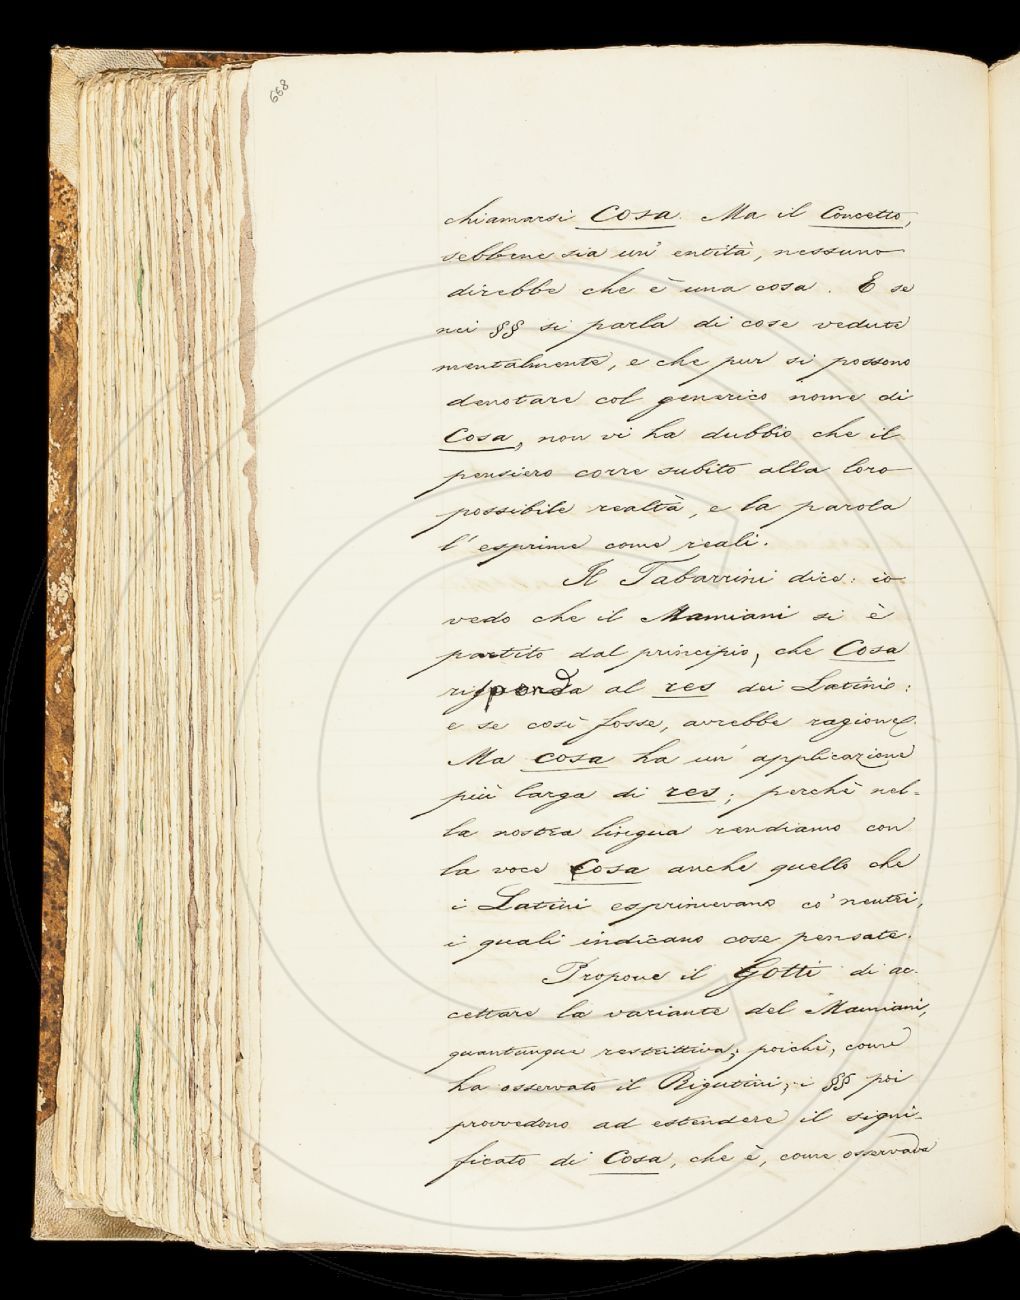 668
chiamarsi Cosa. Ma il Concetto,
sebbene sia un' entità, nessuno
direbbe che è una cosa. E se
nei §§ si parla di cose vedute
mentalmente, e che pur si possono
denotare col generico nome di
Cosa, non vi ha dubbio che il
pensiero corre subito alla loro
possibile realtà, e la parola
l'esprime come reali.
Il Tabarrini dice: io
vedo che il Mamiani si è
partito dal principio, che Cosa
risponda al res dei Latini:
e se così fosse, avrebbe ragione.
Ma cosa ha un' applicazione
più larga di res; perchè nel-
la nostra lingua rendiamo con
la voce Cosa anche quello che
i Latini esprimevano co' neutri,
i quali indicano cose pensate.
Propone il Gotti di ac-
cettare la variante del Mamiani,
quantunque restrittiva; poichè, come
ha osservato il Rigutini, i §§ poi
provvedono ad estendere il signi-
ficato di Cosa, che è, come osservava